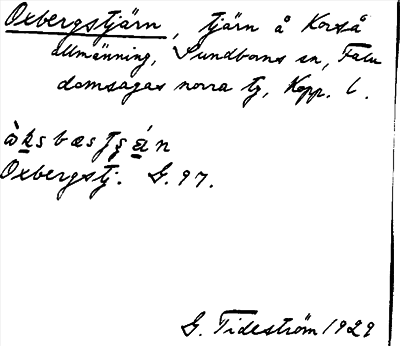 Oxbergstjärn, tjärn å Korså
allmänning, Sundborns sn, Falu
domsagas norra tg, Kopp. l.
Oxbergstj. G. 97.
G. Tideström 1929